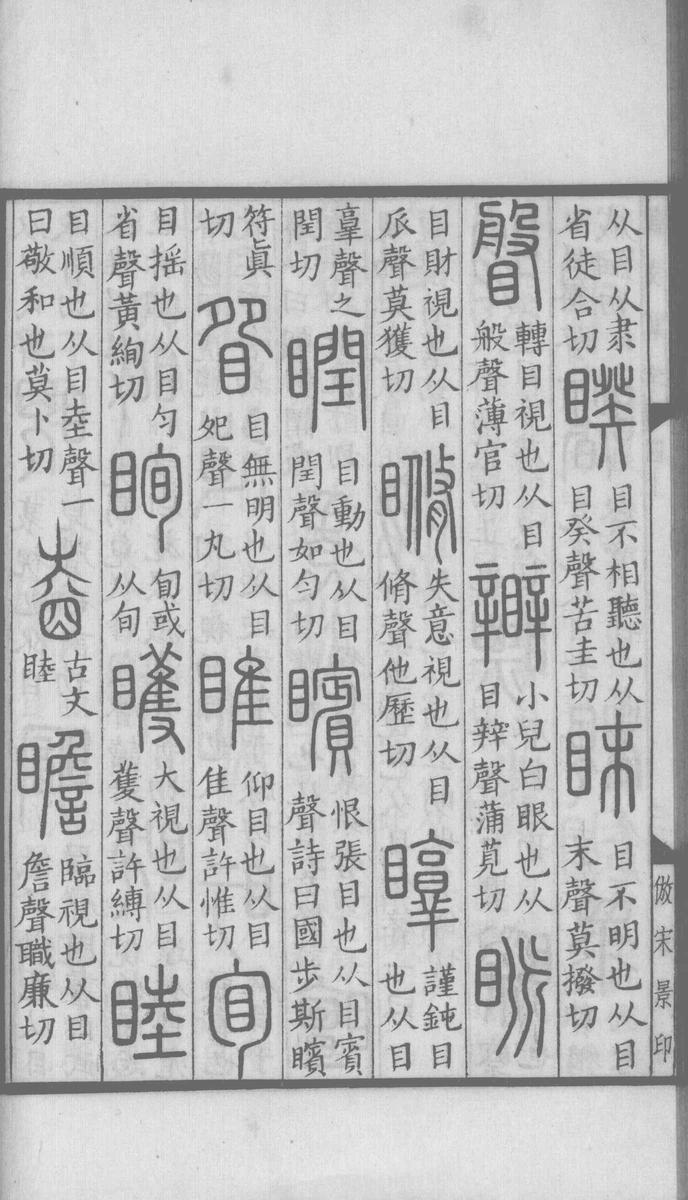 从目从隶省徒合切 睽 目不相聽也从目癸聲苦圭切 眜 目不明也从目末聲莫撥切
轉目視也从目般聲薄官切 小兒白眼也从目辡聲蒲莧切 眽
目財視也从目𠂢聲莫獲切 失意視也从目脩聲他歷切 謹鈍目也从目
𦎫聲之閏切 瞤 目動也从目閏聲如勻切 矉 恨張目也从目賓聲詩曰國步斯矉
符眞切 眢 目無明也从目夗聲一丸切 睢 仰目也从目隹聲許惟切 旬
目搖也从目勻省聲黃絢切 眴 旬或从旬 矆 大視也从目蒦聲許縛切 睦
目順也从目坴聲一曰敬和也莫卜切 古文睦 瞻 臨視也从目詹聲職廉切
倣宋景印